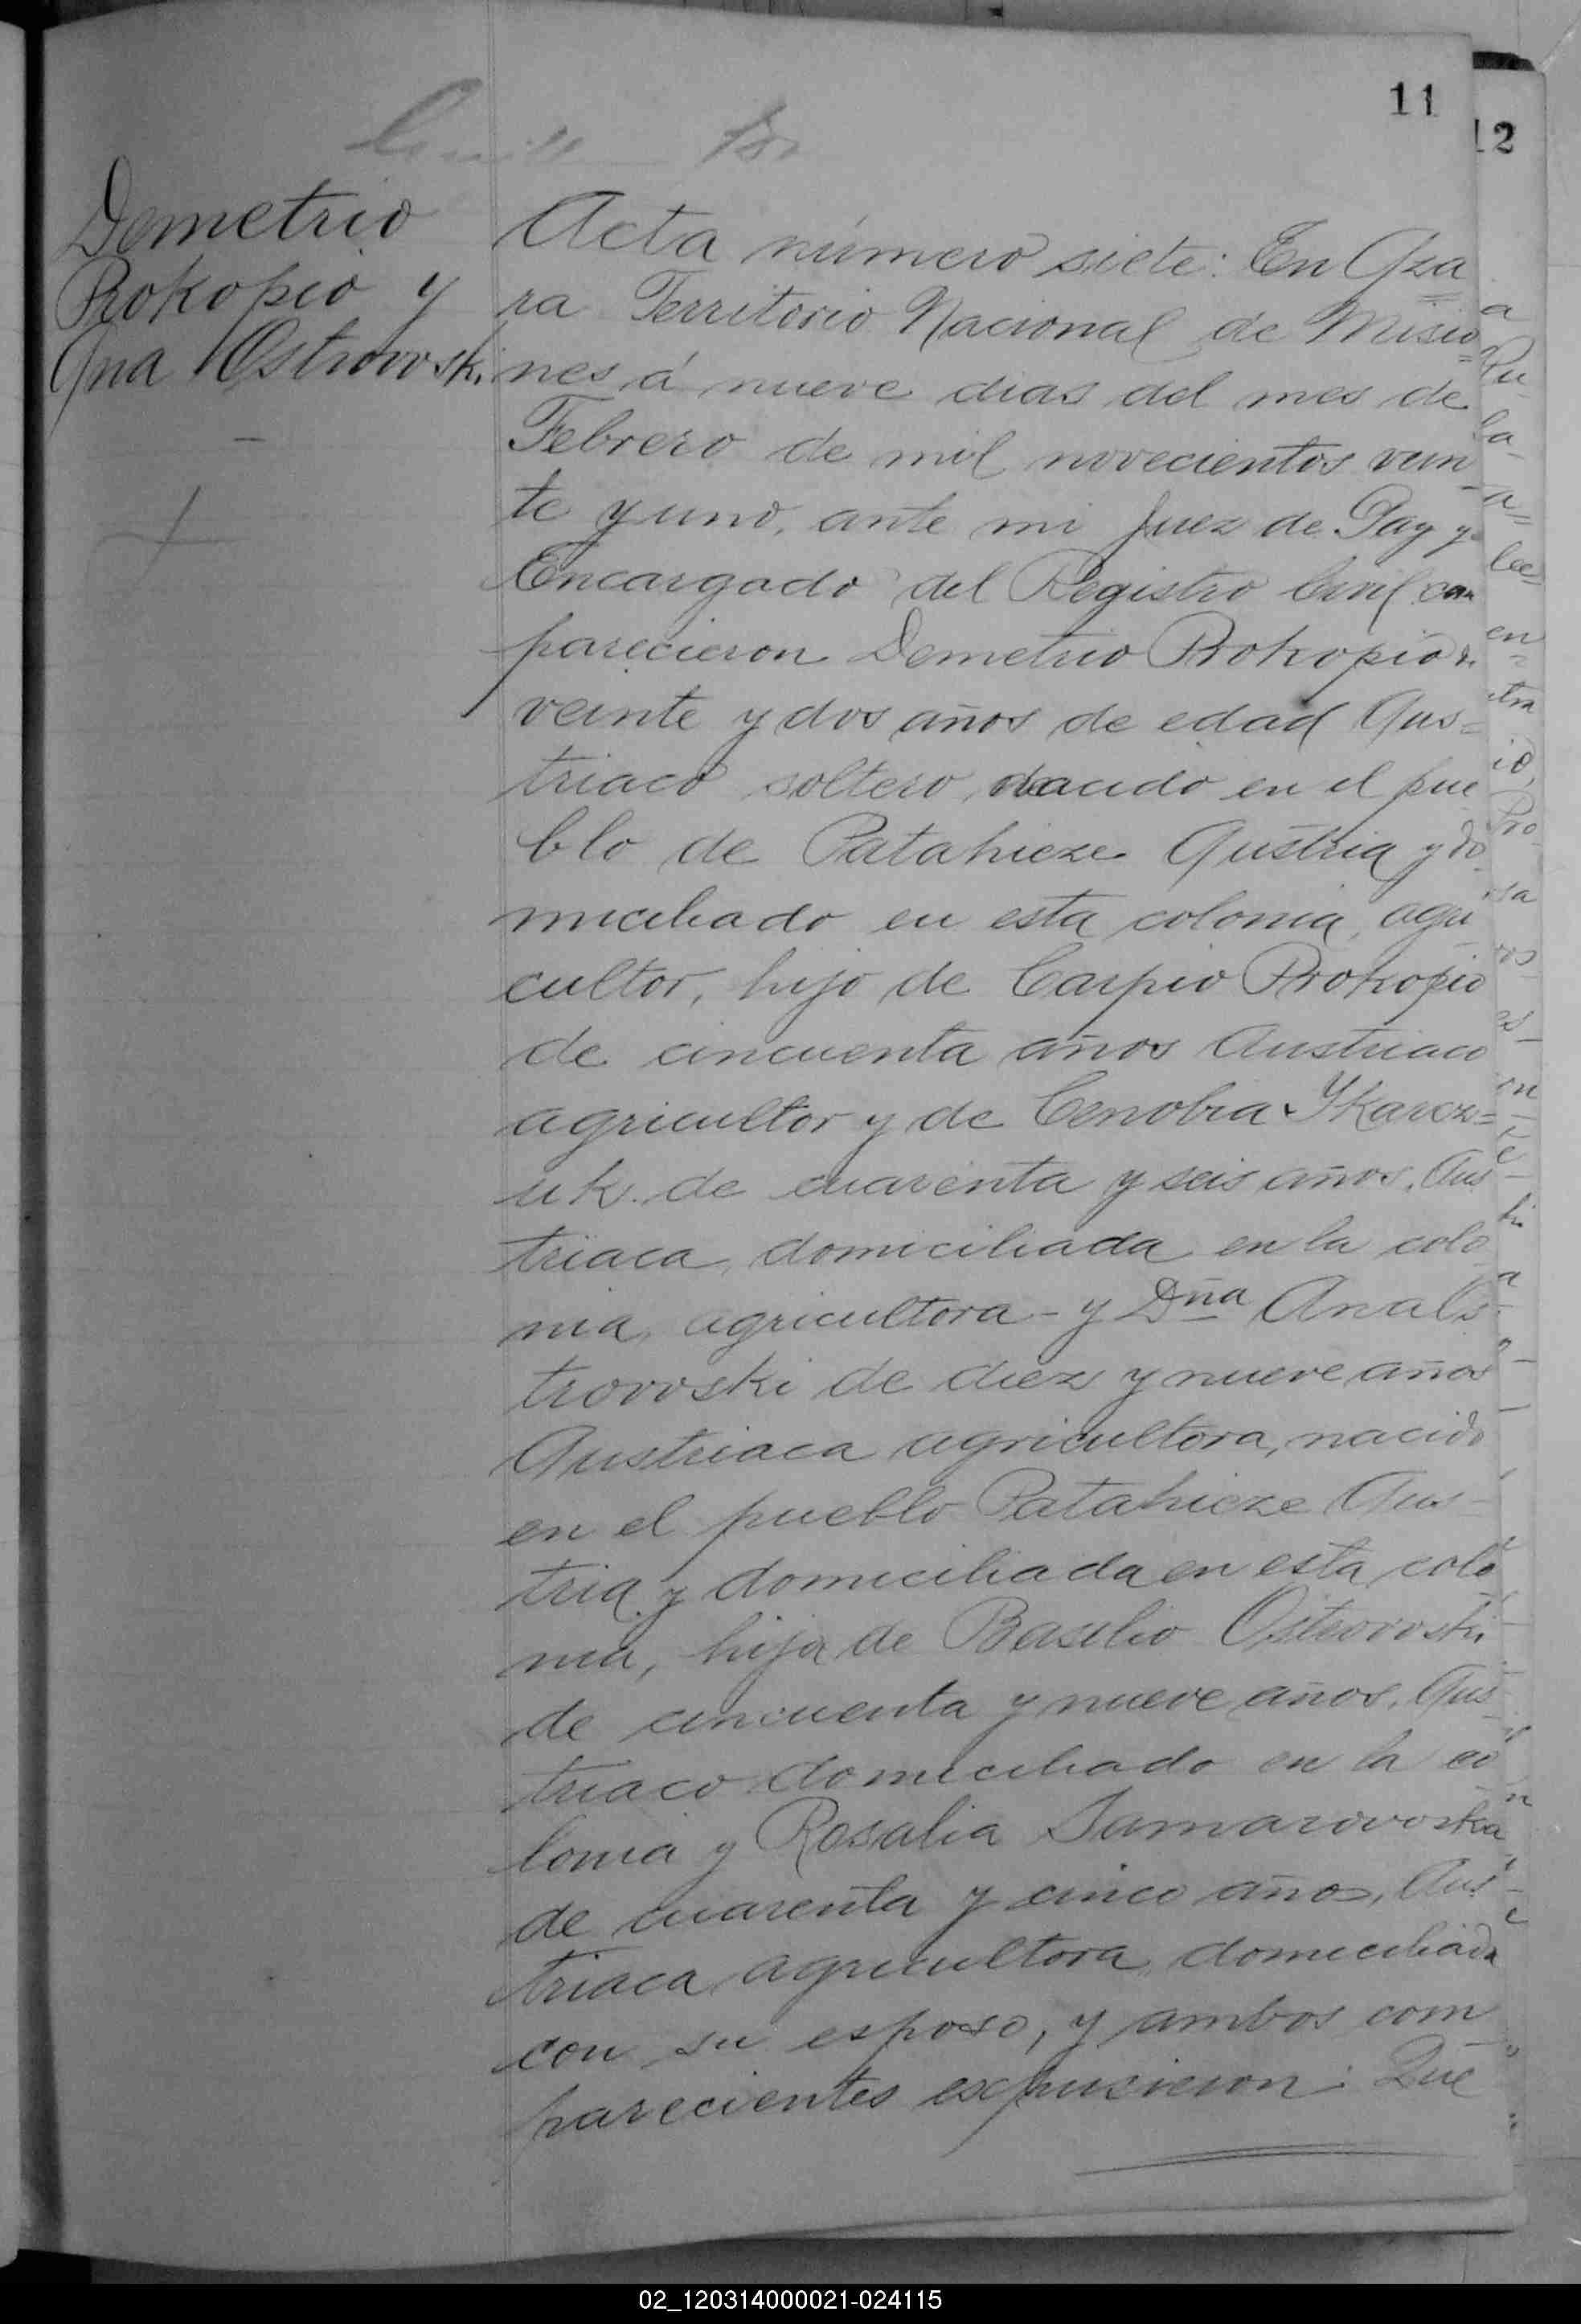 11
12
Demetrio
Prokopio y
Ana Ostrovoski
Acta número siete: En Aza
ra Territorio Nacional de Misio=
nes á nueve dias del mes de
Febrero de mil novecientos vein
te y uno, ante mi Juez de Paz y
Encargado del Registro Civil com
parecieron Demetrio Prokopio de
veinte y dos años de edad Aus=
triaco soltero, nacido en el pue
blo de Patahieze Austria y do
miciliado en esta colonia, agri
cultor, hijo de Carpio Prokopio
de cincuenta años Austriaco
agricultor y de Cenobia Ykarcz=
uk de cuarenta y seis años, Aus
triaca, domiciliada en la colo
nia, agricultora - y Dña Ana Os
trovoski de diez y nueve años
Austriaca agricultora, nacido
en el pueblo Patahieze Aus-
tria y domiciliada en esta colo
nia, hija de Basilio Ostrovoski
de cincuenta y nueve años, Aus
triaco domiciliado en la co
lonia y Rosalia Samarovoska
de cuarenta y cinco años, Aus
triaca agricultora, domiciliada
con su esposo, y ambos com
parecientes expusieron: Que
02_120314000021-024115